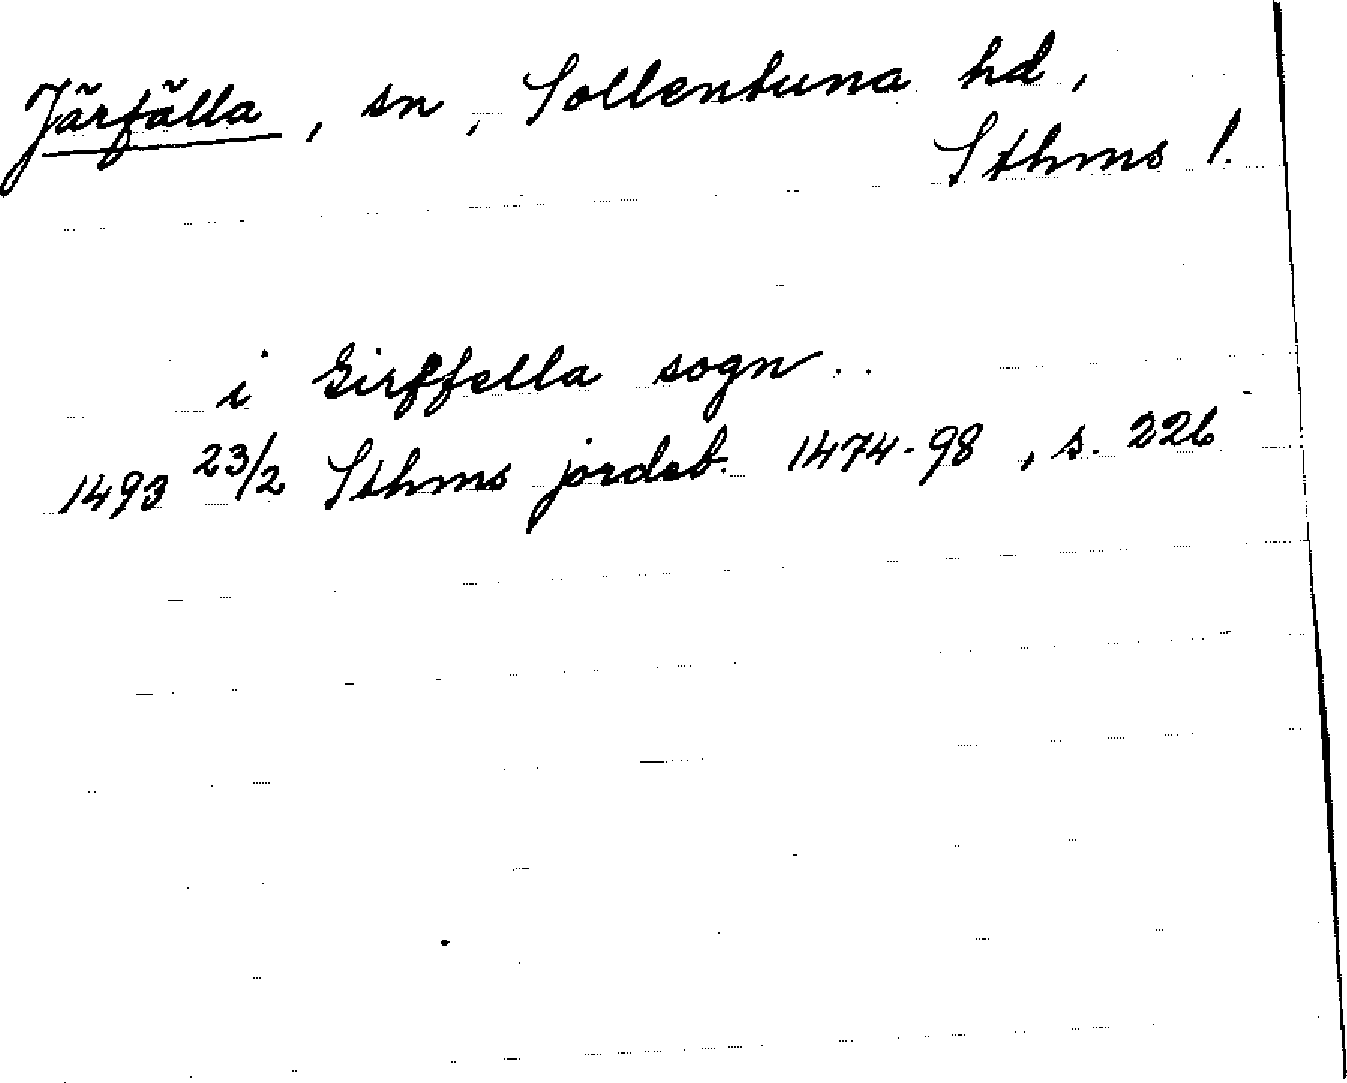 Järfälla, sn, Sollentuna hd,
Sthms l.
i Girffella sogn..
1493 23/2 Sthms jordeb. 1474-98, s. 226